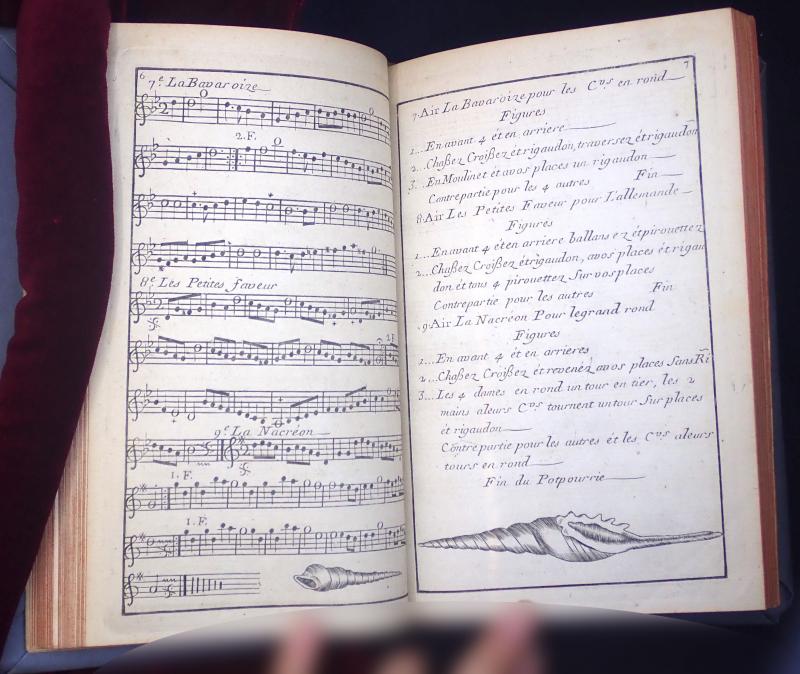 6
7.e La Bavaroize
2.F.
8.e Les Petites faveur
2 F
9.e La Nacréon
1. F.
1. F.
7
7. Air La Bavaroize pour les C.vs en rond
Figures
1... En avant 4 et en arriere
2... Chaßez Croißez et rigaudon, traversez et rigaudon
3... En Moulinet et avos places un rigaudon
Contrepartie pour les 4 autres Fin
8. Air Les Petites Faveur pour L'allemande
Figures
1... En avant 4 et en arriere ballans ez et pirouettez
2... Chaßez Croißez et rigaudon, avos places et rigau
don et tous 4 pirouettez Sur vos places
Contrepartie pour les autres Fin
9. Air La Nacréon Pour le grand rond
Figures
1... En avant 4 et en arrieres
2... Chaßez Croißez et revenéz avos places Sans Ri
3... Les 4 dames en rond un tour en tier, les 2
mains aleurs C.vs tournent un tour Sur places
et rigaudon
Contrepartie pour les autres et les C.vs aleurs
tours en rond
Fin du Potpourrie